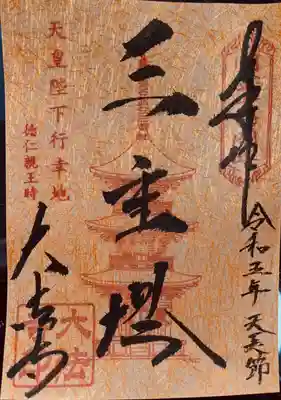 奉拝
令和五年 天長節
三重塔
天皇陛下行幸地
徳仁親王時
大法寺
大法